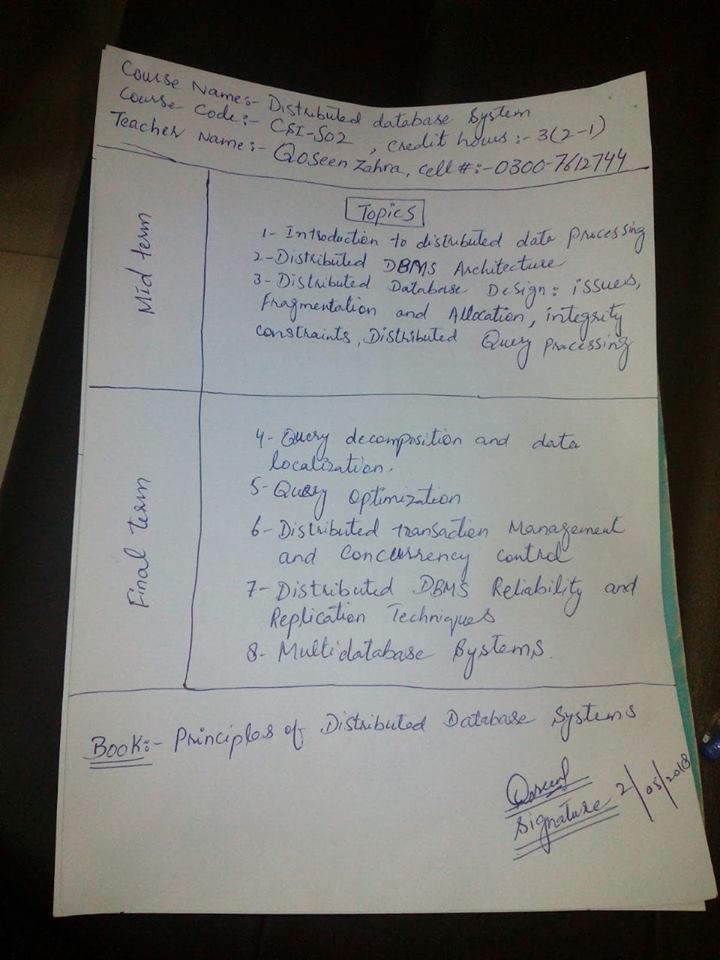 Course Name:- Distributed database System
Course Code:- CSI-502 , credit hours :- 3(2-1)
Teacher Name:- Qoseen Zahra, cell #:-0300-7612744
Mid term
Topics
1- Introduction to distributed data Processing
2- Distributed DBMS Architecture
3- Distributed Database Design: issues,
Fragmentation and Allocation, integrity
constraints, Distributed Query Processing
Final term
4- Query decomposition and data
localization.
5- Query Optimization
6- Distributed transaction Management
and Concurrency control
7- Distributed DBMS Reliability and
Replication Techniques
8- Multidatabase Systems.
Book:- Principles of Distributed Database Systems
Signature 2/05/2018